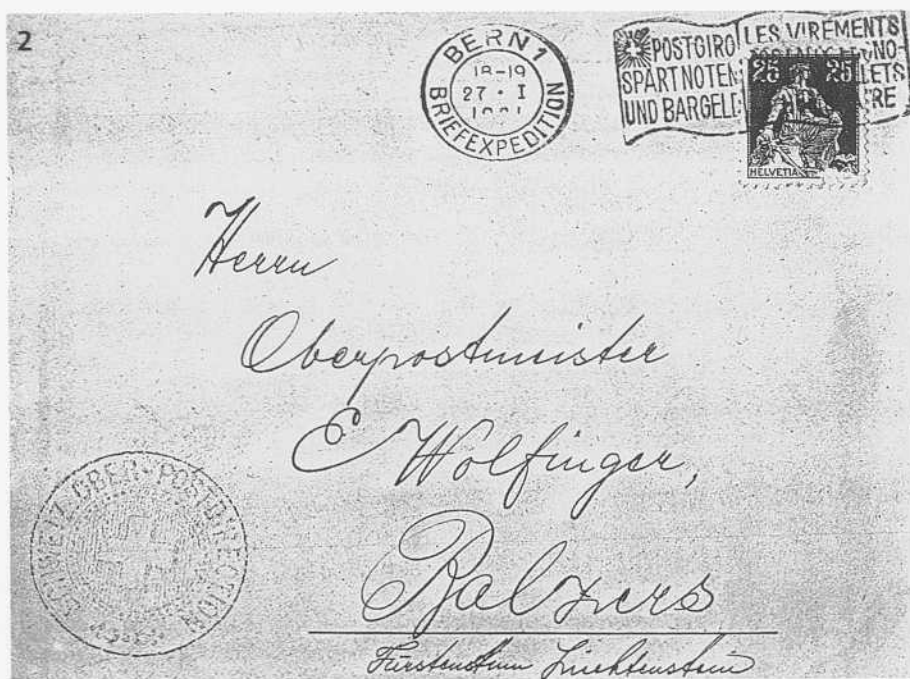 2
BERN 1
18-19
27 · I
BRIEFEXPEDITION
POSTGIRO
SPART NOTEN
UND BARGELD
LES VIREMENTS
25 25
HELVETIA
Herrn
Oberpostmeister
E Wolfinger,
Balzers
Fürstentum Liechtenstein
SCHWEIZ. OBER-POSTDIRECTION